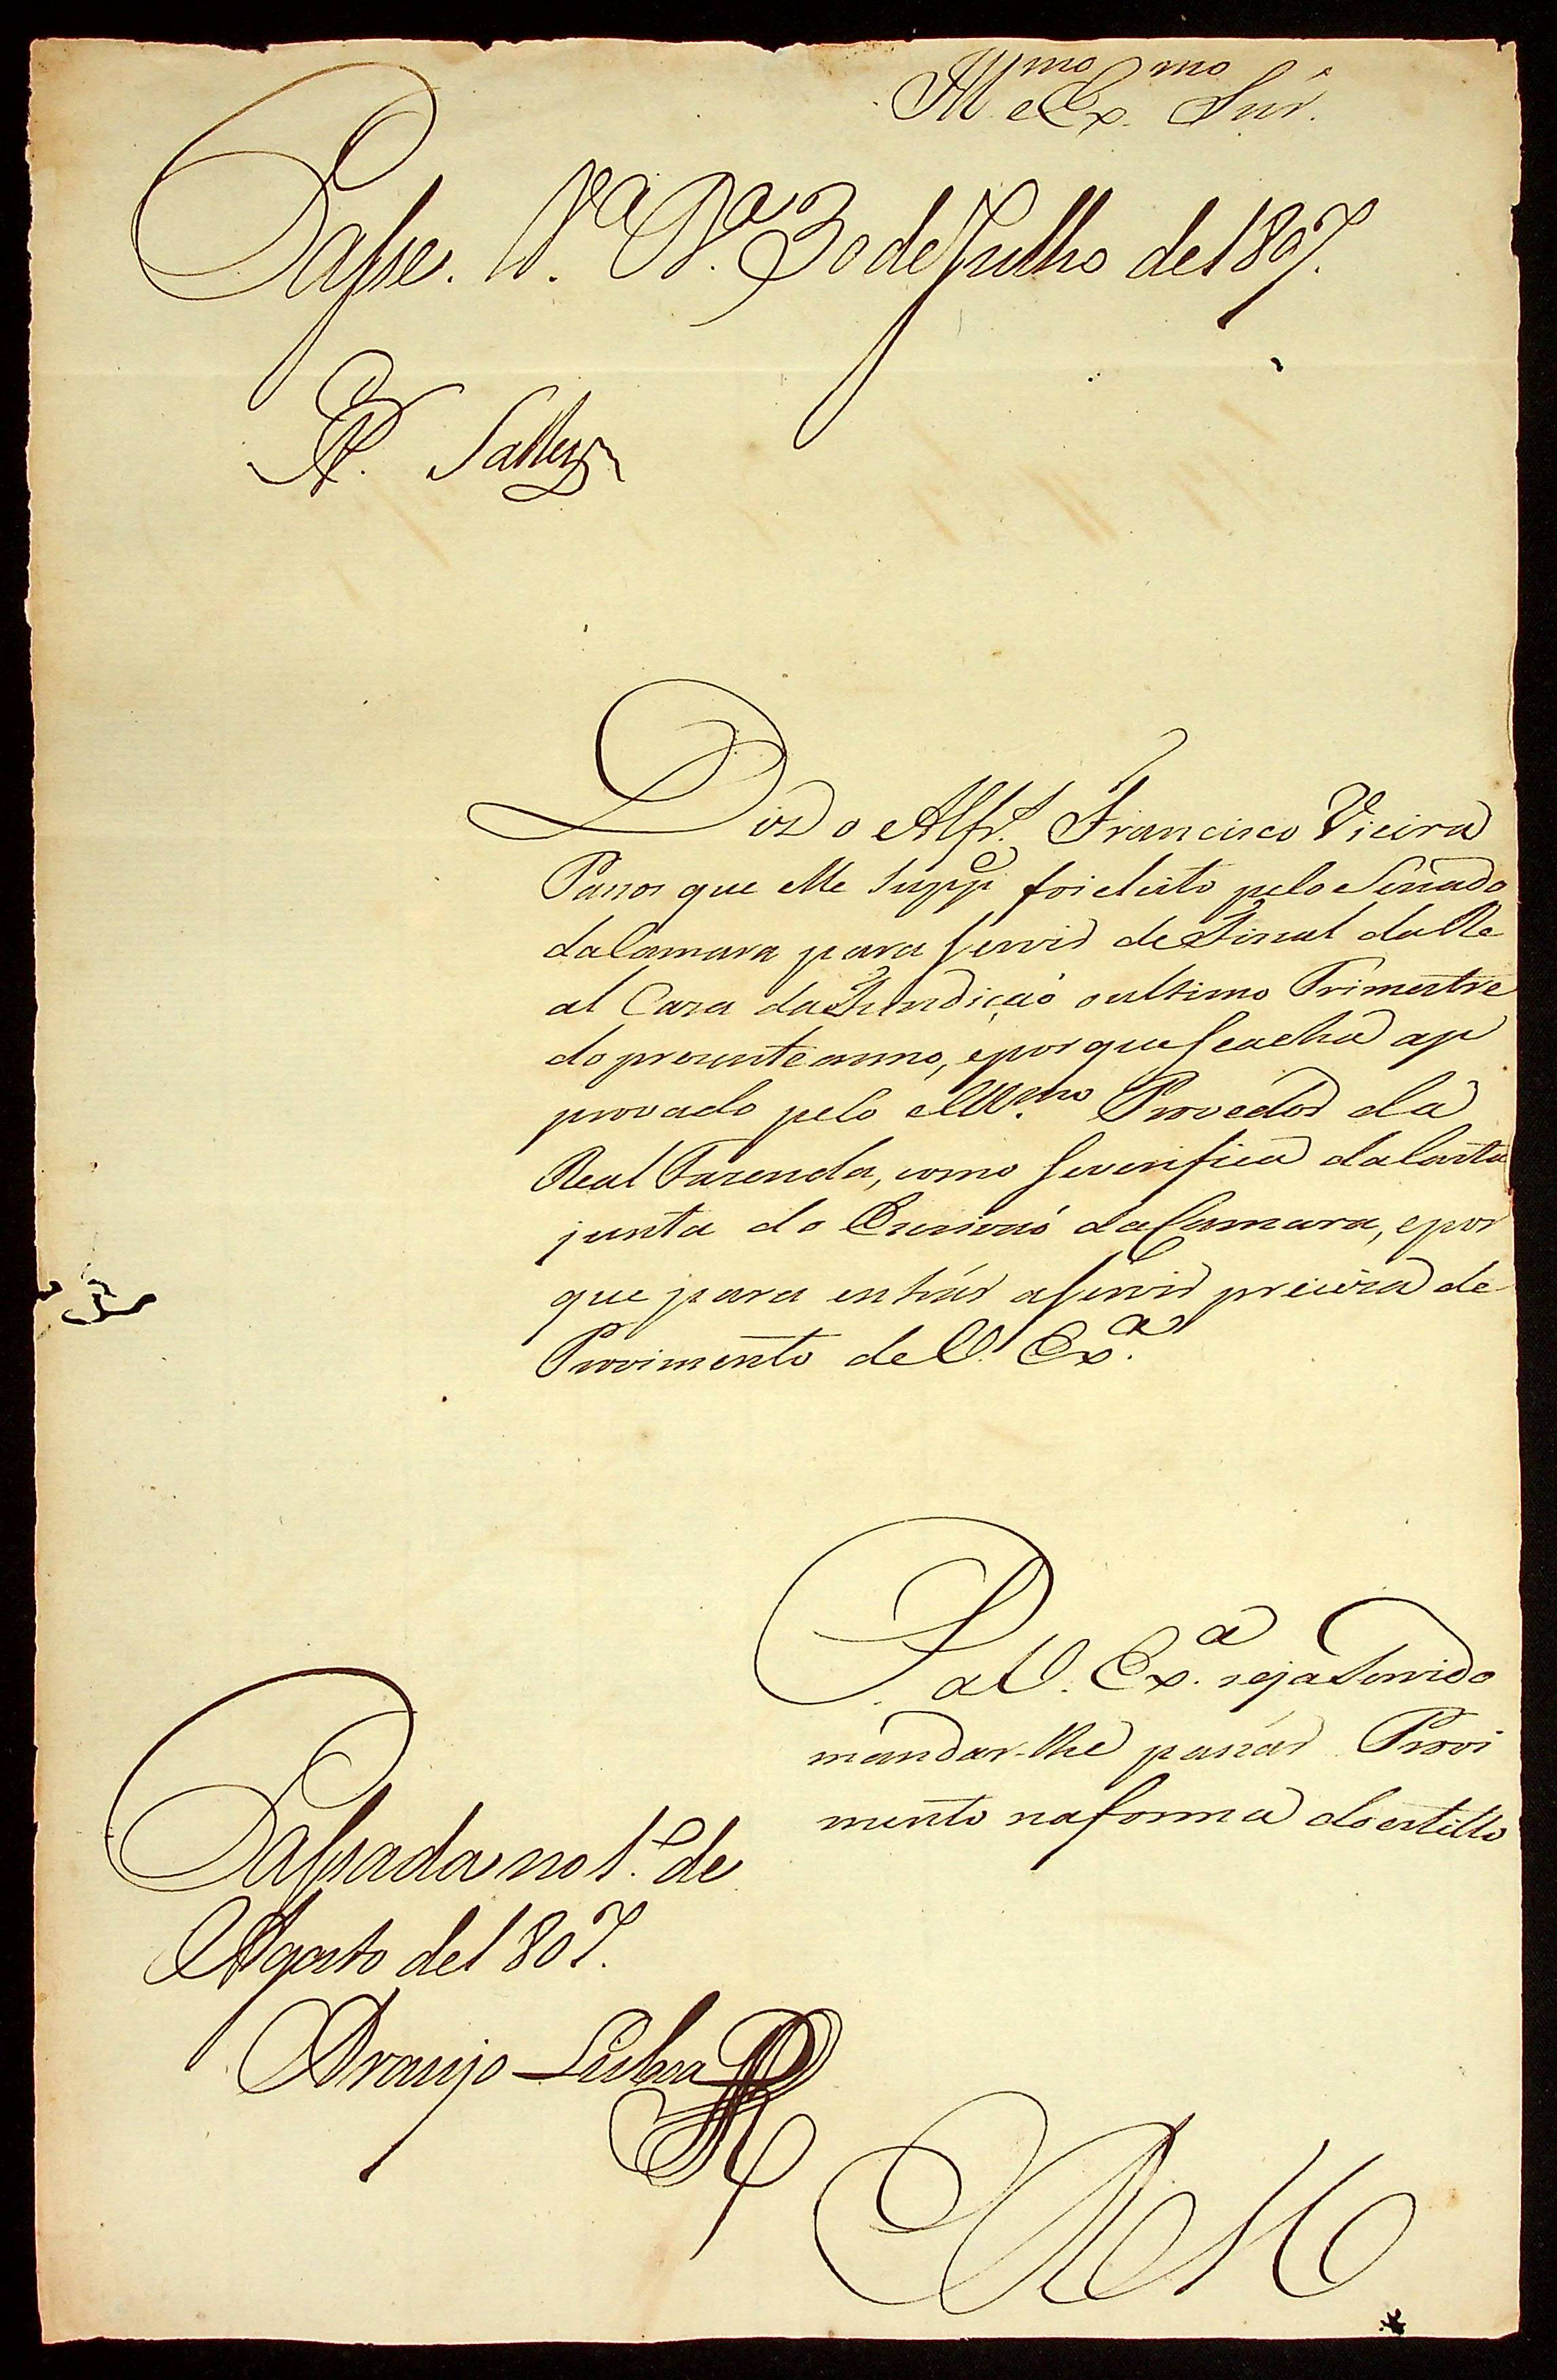 Ill.mo e Ex.mo Snr.
Passe. V.a R.a 30 de Julho de 1807.
Salles
Diz o Alfr.s Francisco Vieira
Passos que elle Supp.e foi eleito pelo Senado
da Camara para servir de Fiscal da Re
al Caza da Fundição o ultimo Trimestre
do prezente anno, e por que se acha ap
provado pelo Ill.mo Provedor da
Real Fazenda, como se verifica da Carta
junta do Escrivaó da Camara, e por
que para entrár a servir preciza de
Provimento de V. Ex.a
P. a V. Ex.a seja Servido
mandar-lhe passár Provi
mento na forma do estillo
Passada no 1.o de
Agosto de 1807.
Araujo Lisboa
E R M